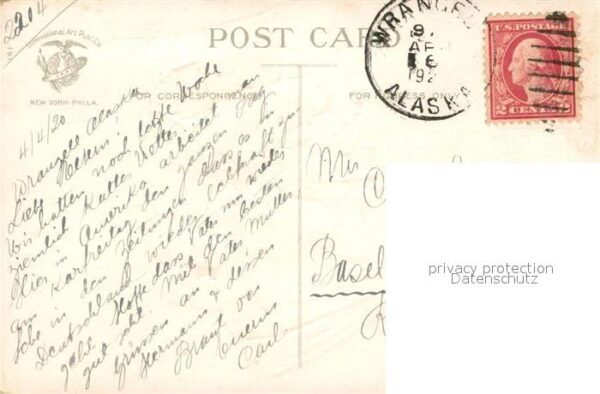 2204
International Art Publ. Co.
NEW YORK-PHILA.
POST CARD
FOR CORRESPONDENCE
FOR ADDRESS ONLY
WRANGELL
APR
6
192
ALASKA
U.S. POSTAGE
2 CENTS 2
Wrangell Alaska
4/4/20
Liebe Eltern!
Wir hatten noch letzte Woche
ziemlich kaltes Wetter.
Hier in Amerika arbeitet man
am Karfreitag den ganzen Tag
Sehe in den Zeitungen dass es in
Deutschland wieder lebhaft zu
geht. Hoffe dass Pates nun wieder
gut geht. Mit den besten
Grüssen an Pates Mutter
Hermann & dessen
Braut von
Eurem
Carl
Mr
Basel
privacy protection
Datenschutz